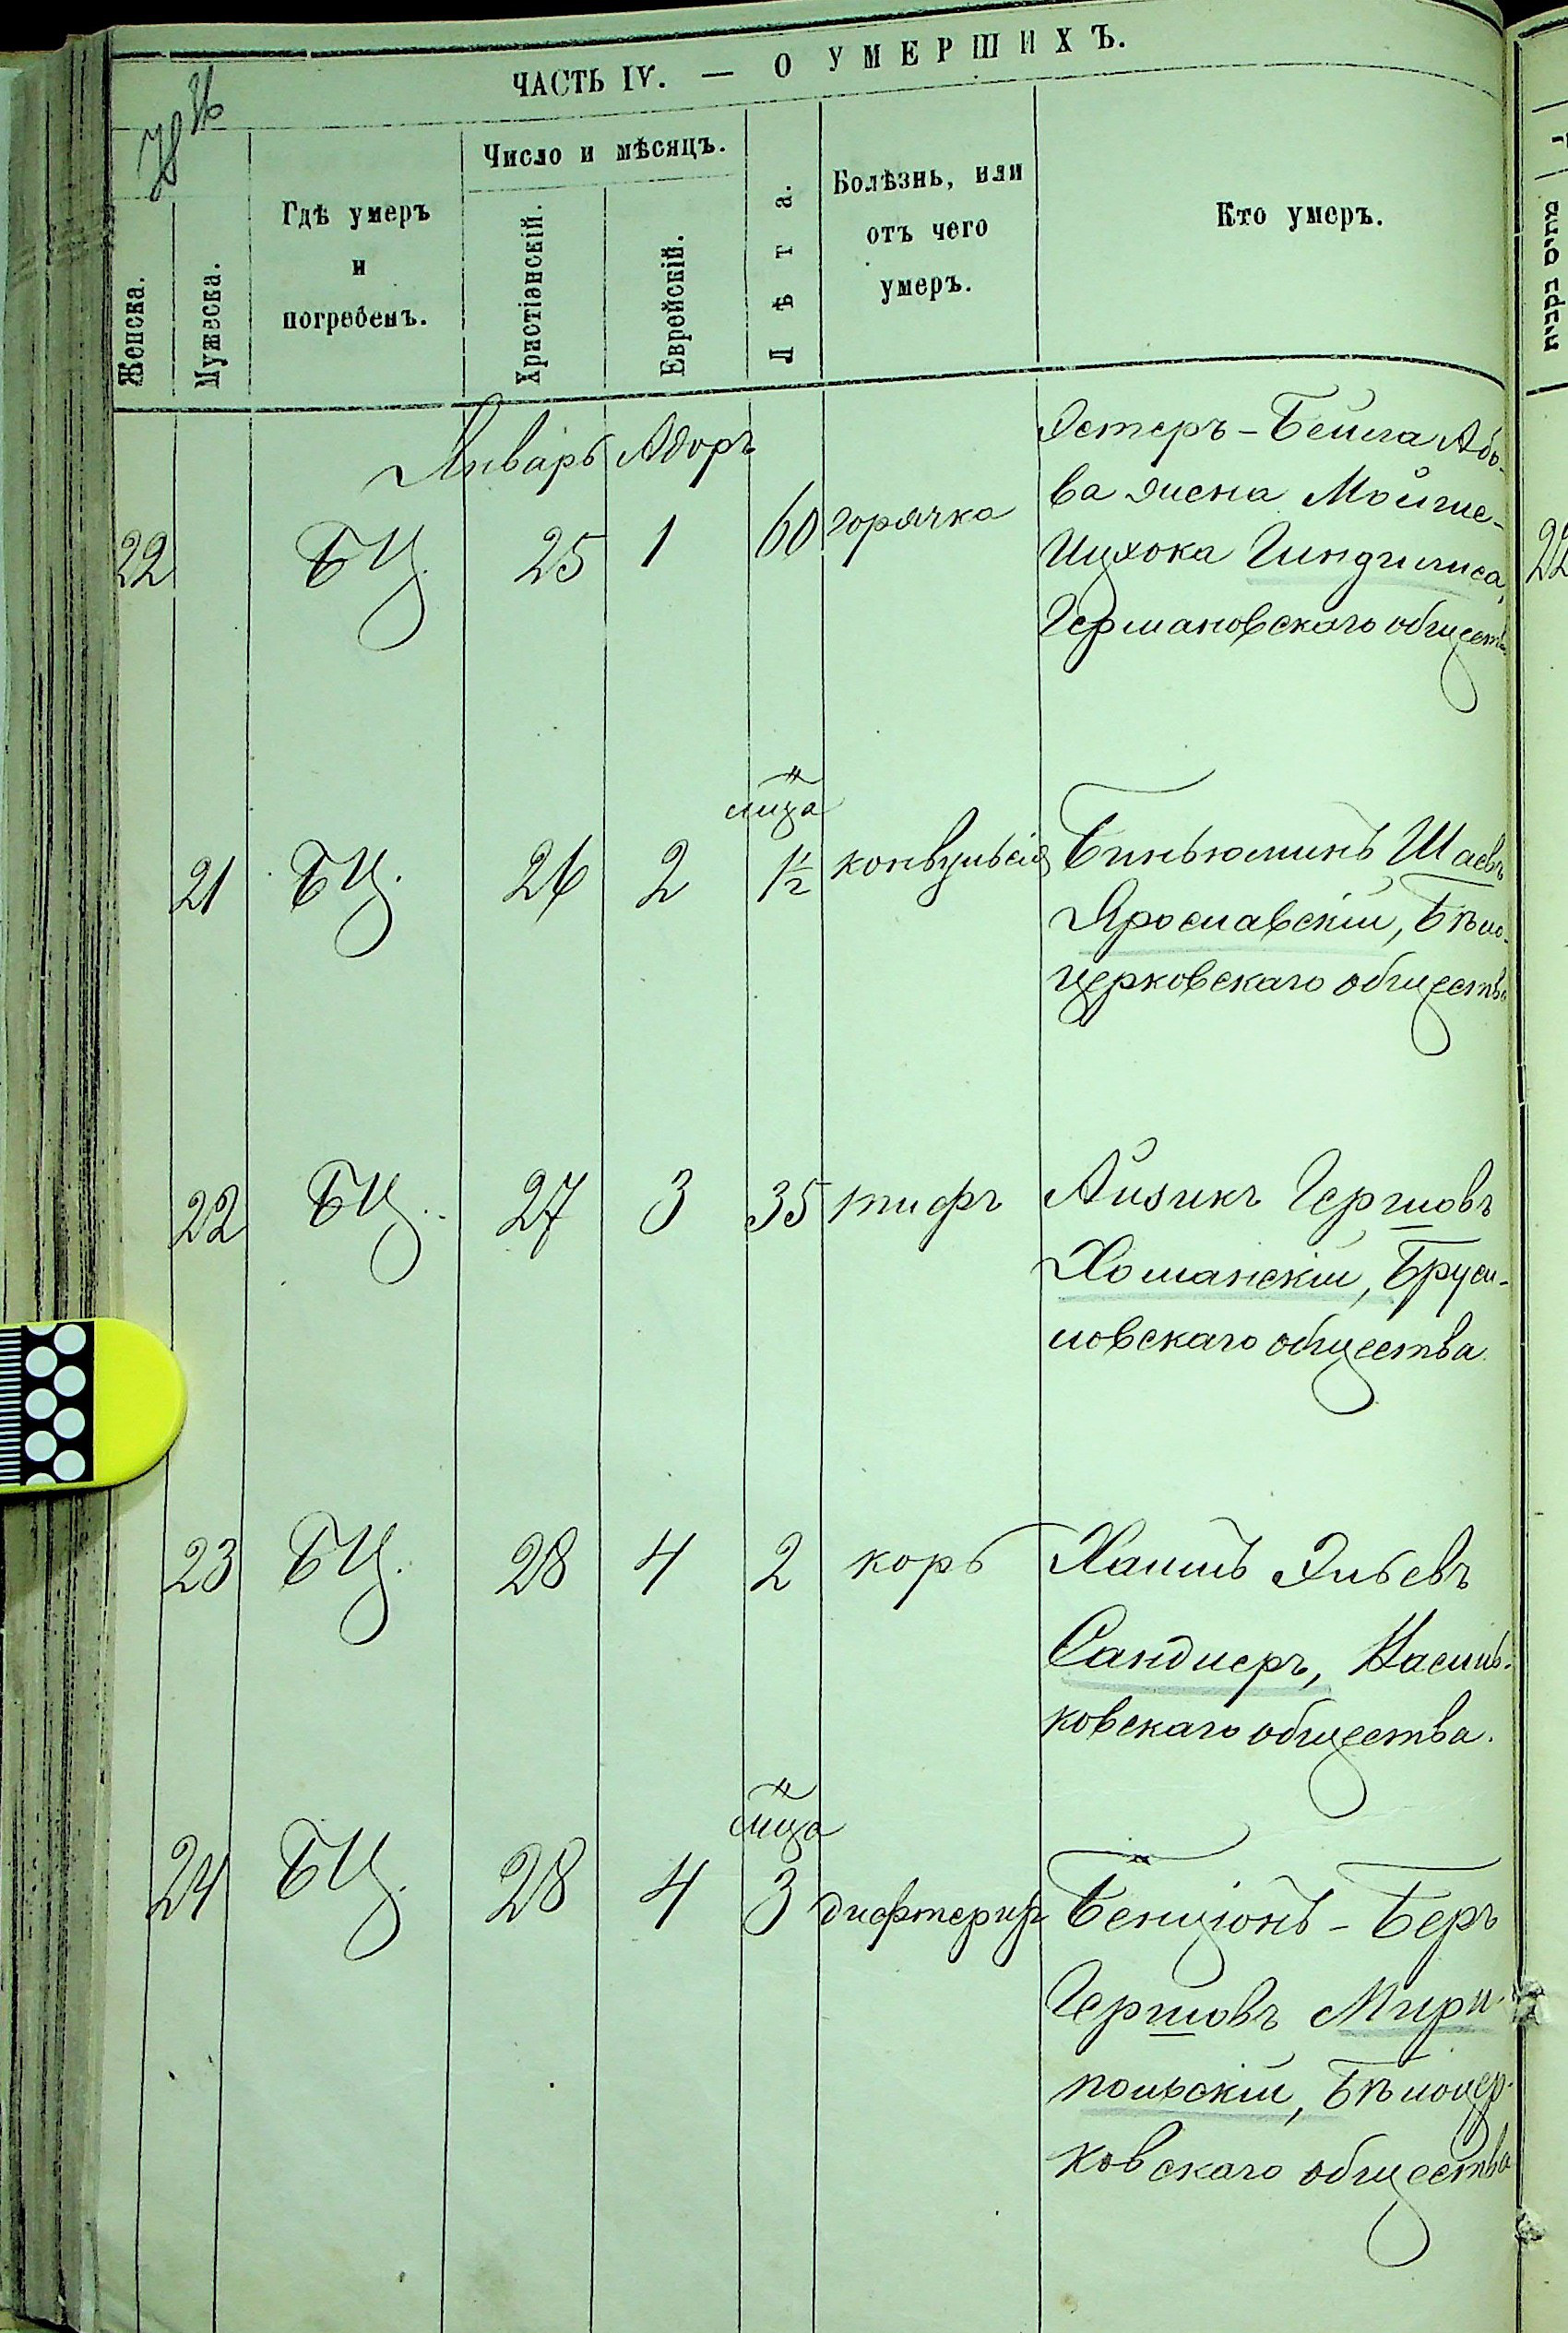 ЧАСТЬ IV. — О УМЕРШИХЪ.
Женска.
Мужеска.
Гдѣ умеръ
и
погребенъ.
Число и мѣсяцъ.
Христіанскій.
Еврейскій.
Лѣта.
Болѣзнь, или
отъ чего
умеръ.
Кто умеръ.
Январь Адоръ
22 БЦ. 25 1 60 горячка
Эстеръ-Бейла Або-
ва жена Мойше-
Ицхока Гиндилиса,
Германовскаго общества
мца
21 БЦ. 26 2 1½ конвульсія Биньюминъ Шаевъ
Ярославскій, Бѣло-
церковскаго общества
22 БЦ. 27 3 35 тифъ Айзикъ Гершовъ
Хоманскій, Бруси-
ловскаго общества.
23 БЦ. 28 4 2 корь Хаимъ Эльевъ
Сандлеръ, Василь-
ковскаго общества.
мца
24 БЦ. 28 4 3 дифтеритъ Бенціонъ-Беръ
Гершовъ Мири-
польскій, Бѣлоцер-
ковскаго общества
22